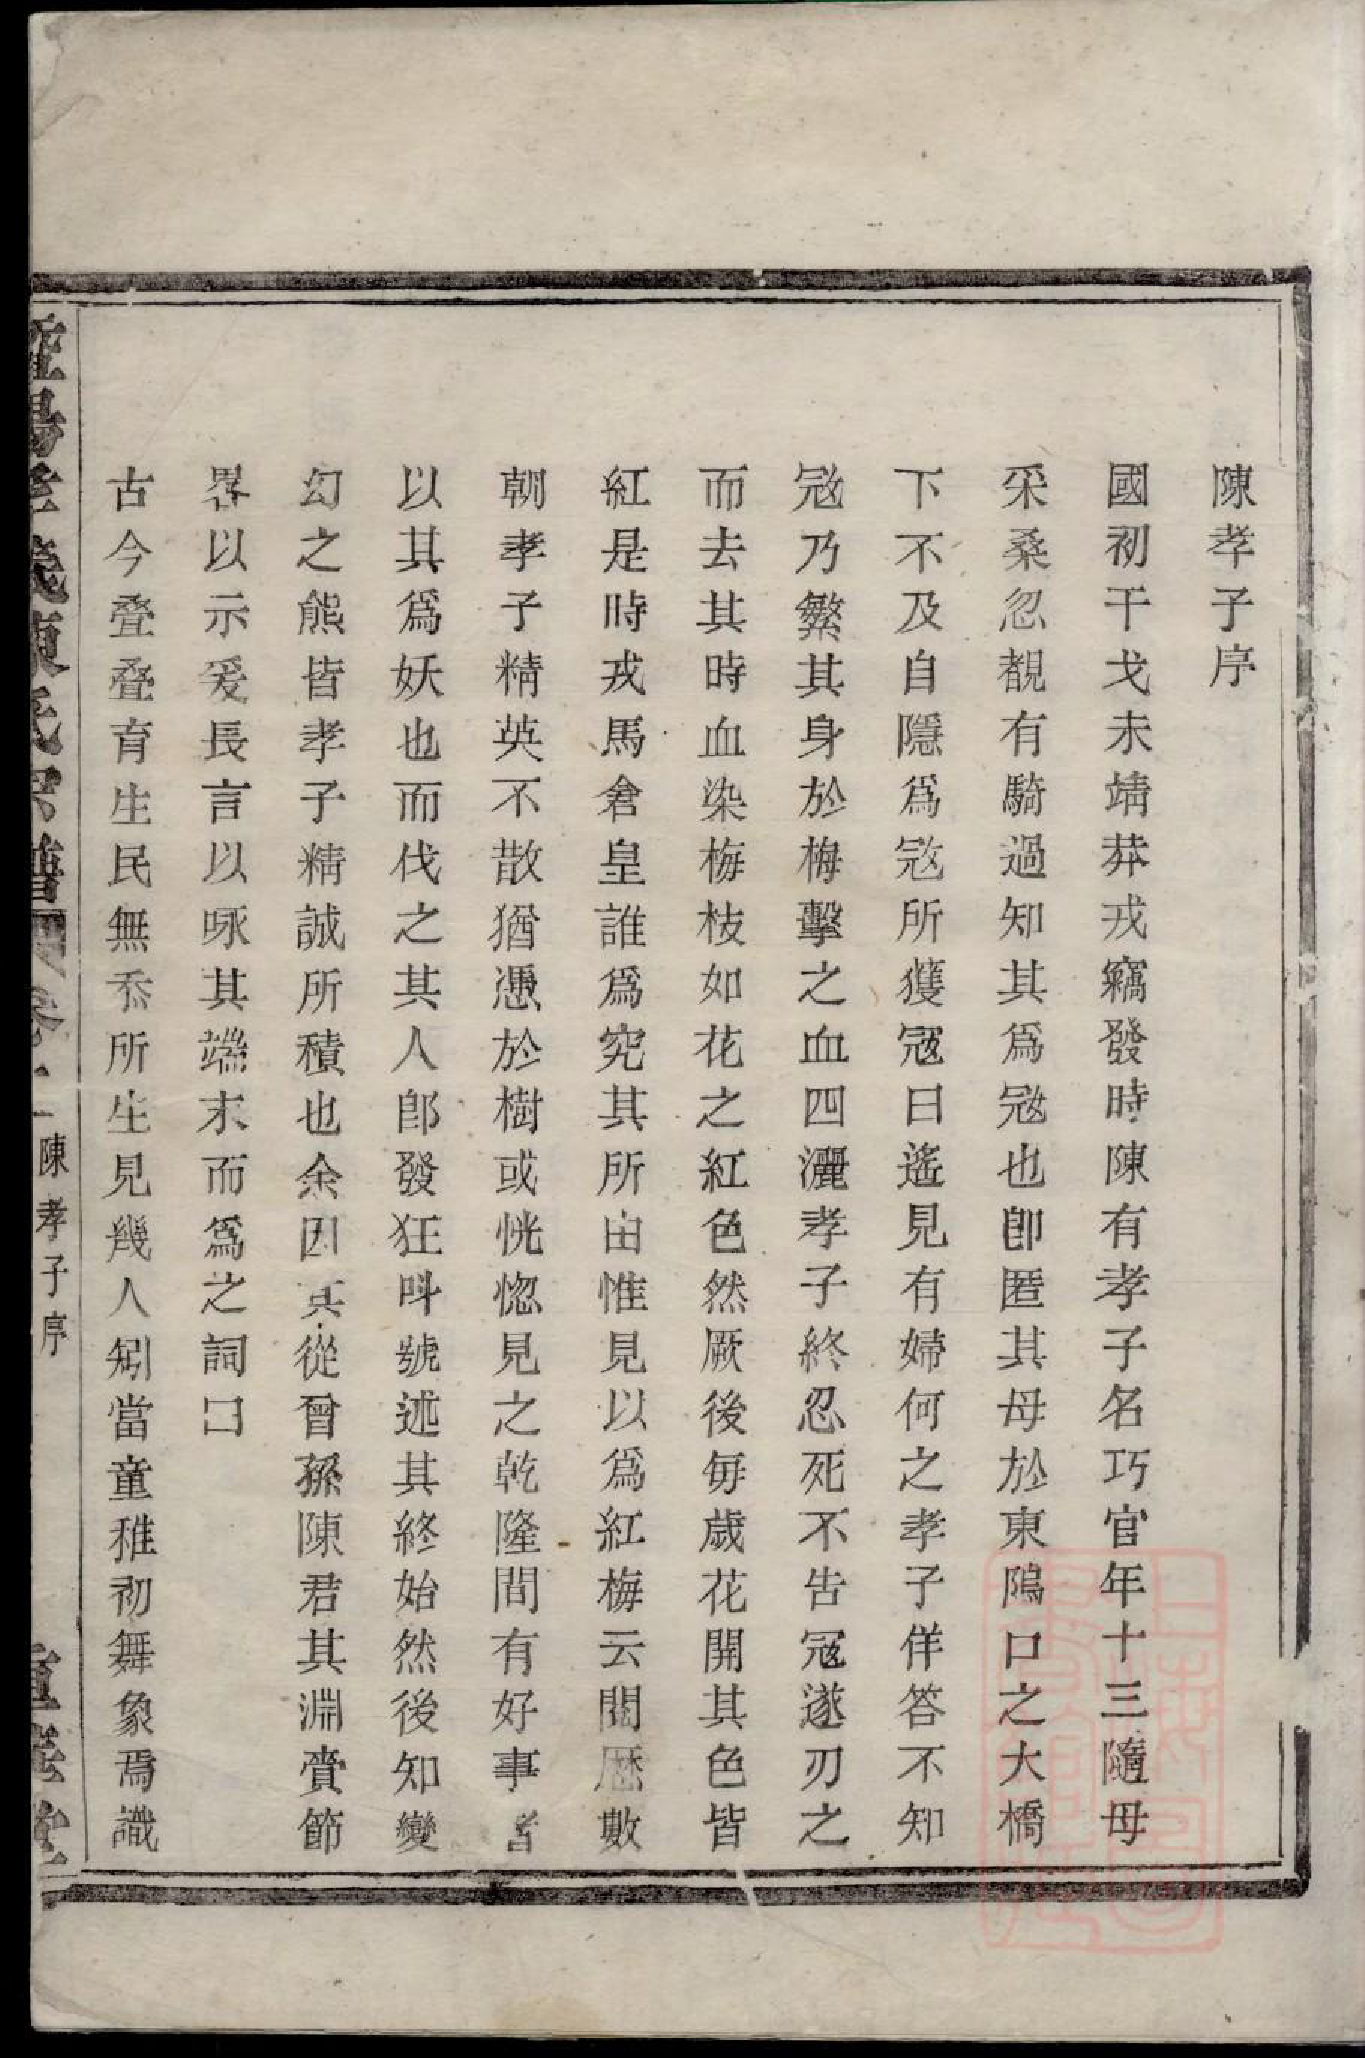 陳孝子序
國初干戈未靖莽戎竊發時陳有孝子名巧官年十三隨母
采桑忽覩有騎過知其爲冦也卽匿其母於東隖口之大橋
下不及自隱爲冦所獲冦曰遙見有婦何之孝子佯答不知
冦乃繫其身於梅擊之血四灑孝子終忍死不告冦遂刃之
而去其時血染梅枝如花之紅色然厥後每歲花開其色皆
紅是時戎馬倉皇誰爲究其所由惟見以爲紅梅云閱歷數
朝孝子精英不散猶憑於樹或恍惚見之乾隆間有好事者
以其爲妖也而伐之其人卽發狂呌號述其終始然後知變
幻之熊皆孝子精誠所積也余因其從曾孫陳君其淵賷節
畧以示爰長言以咏其端末而爲之詞曰
古今疊疊育生民無忝所生見幾人矧當童稚初舞象焉識
暨陽孝義陳氏宗譜 卷一 陳孝子序